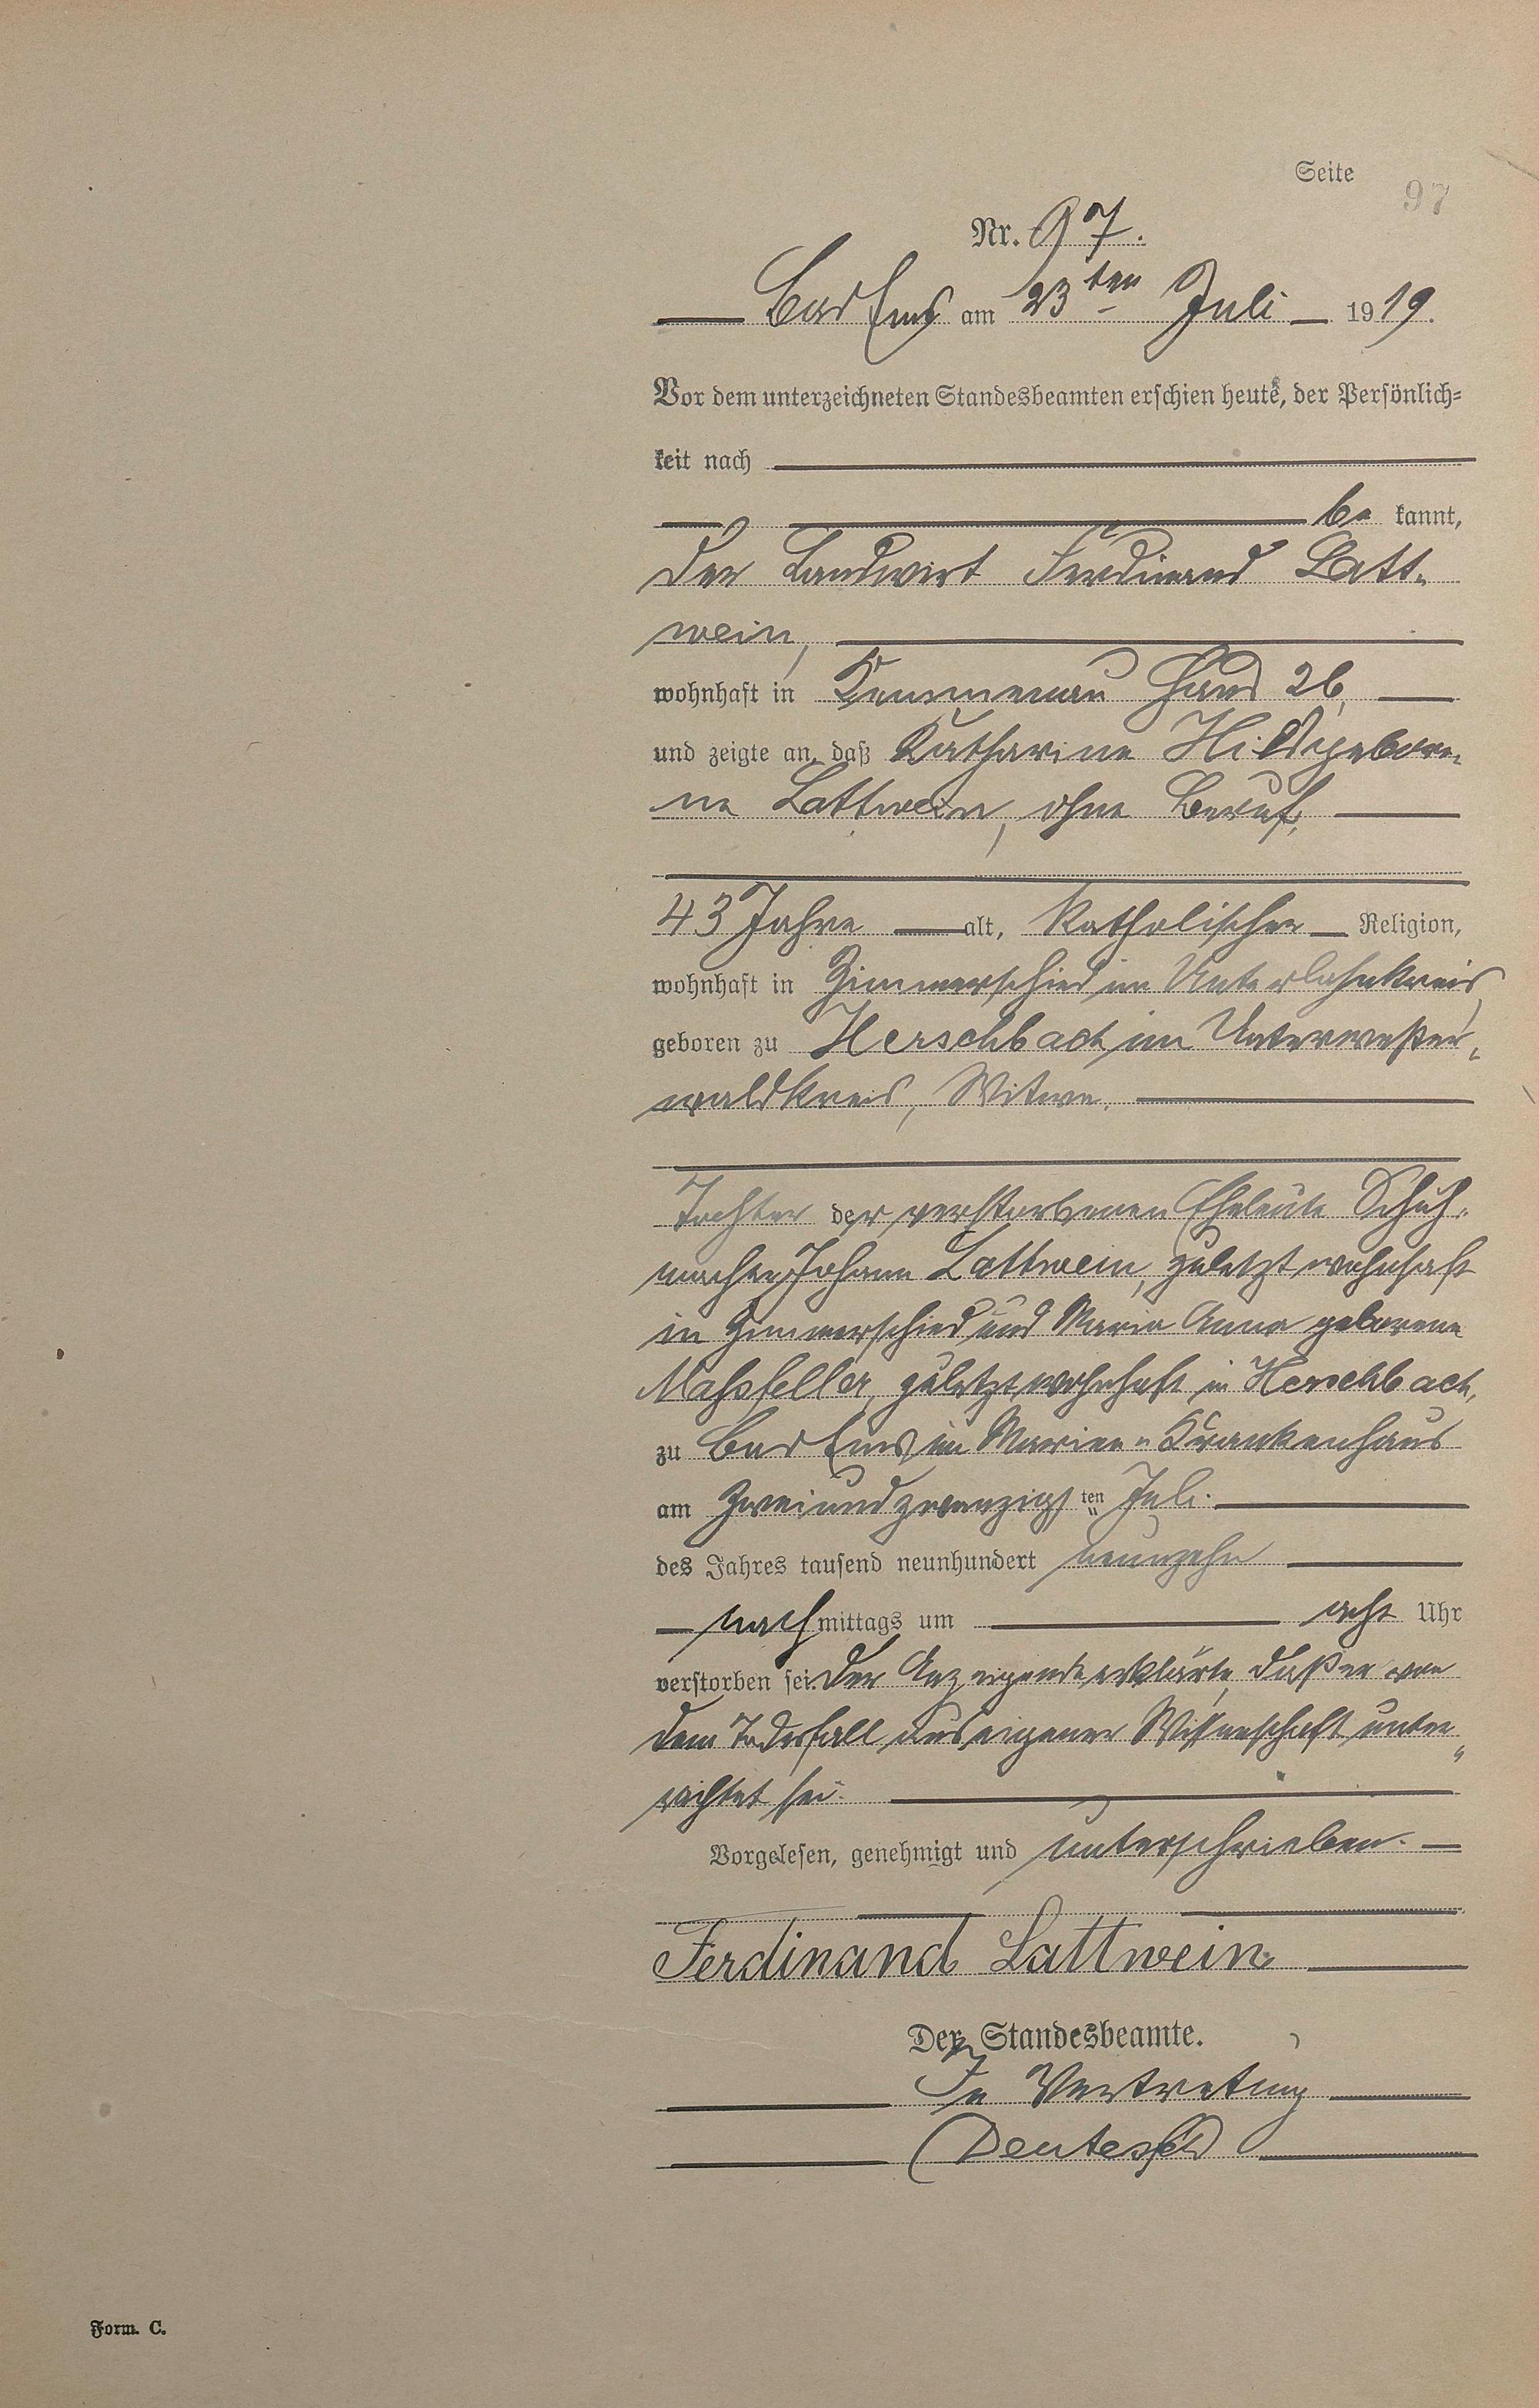 Seite
97
Nr. 97.
Bad Ems am 23ten Juli 1919.
Vor dem unterzeichneten Standesbeamten erschien heute, der Persönlich-
keit nach
be kannt,
der Landwirt Ferdinand Latt-
wein,
wohnhaft in Kemmenau Haus 26,
und zeigte an, daß Katharine Hild gebore-
ne Lattwein, ohne Beruf,
43 Jahre alt, katholischer Religion,
wohnhaft in Zimmerschied im Unterlahnkreis
geboren zu Herschbach im Unterwester-
waldkreis, Witwe,
Tochter der verstorbenen Eheleute Schuh-
macher Johann Lattwein, zuletzt wohnhaft
in Zimmerschied und Maria Anna geborene
Mahsfeller, zuletzt wohnhaft in Herschbach,
zu Bad Ems im Marien-Krankenhaus
am zweiundzwanzigsten Juli
des Jahres tausend neunhundert neunzehn
nachmittags um acht Uhr
verstorben sei. Der Anzeigende erklärte, daß er von
dem Todesfall aus eigener Wissenschaft unter-
richtet sei.
Vorgelesen, genehmigt und unterschrieben.
Ferdinand Lattwein
Der Standesbeamte.
In Vertretung
Form. C.